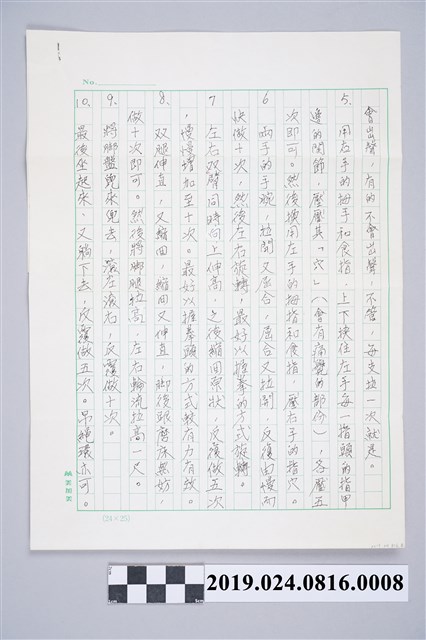 No.
會出聲,有的不會出聲,不管,每支拉一次就是。
5. 用右手的拇手和食指,上下挾住左手每一指頭的指甲
邊的關節,壓壓其「穴」(會有痛覺的部份),各壓五
次即可。然後換用左手的拇指和食指,壓右手的指穴。
6 兩手的手腕,拉開又屈合,屈合又拉開,反復由慢而
快做十次,然後左右旋轉,最好以握拳的方式旋轉。
7 左右双臂同時向上伸高,之後縮回原狀,反復做五次
,慢慢增加至十次。最好以握拳頭的方式較有力有效。
8、双腿伸直,又縮回,縮回又伸直,脚後跟磨床無妨,
做十次即可。然後將脚腿拉高,左右輪流拉高一尺。
9、將脚盤兜來兜去,落左落右,反覆做十次。
10、最後坐起來、又躺下去,反覆做五次。吊繩環亦可。
(24×25)
2019.024.0816.0008